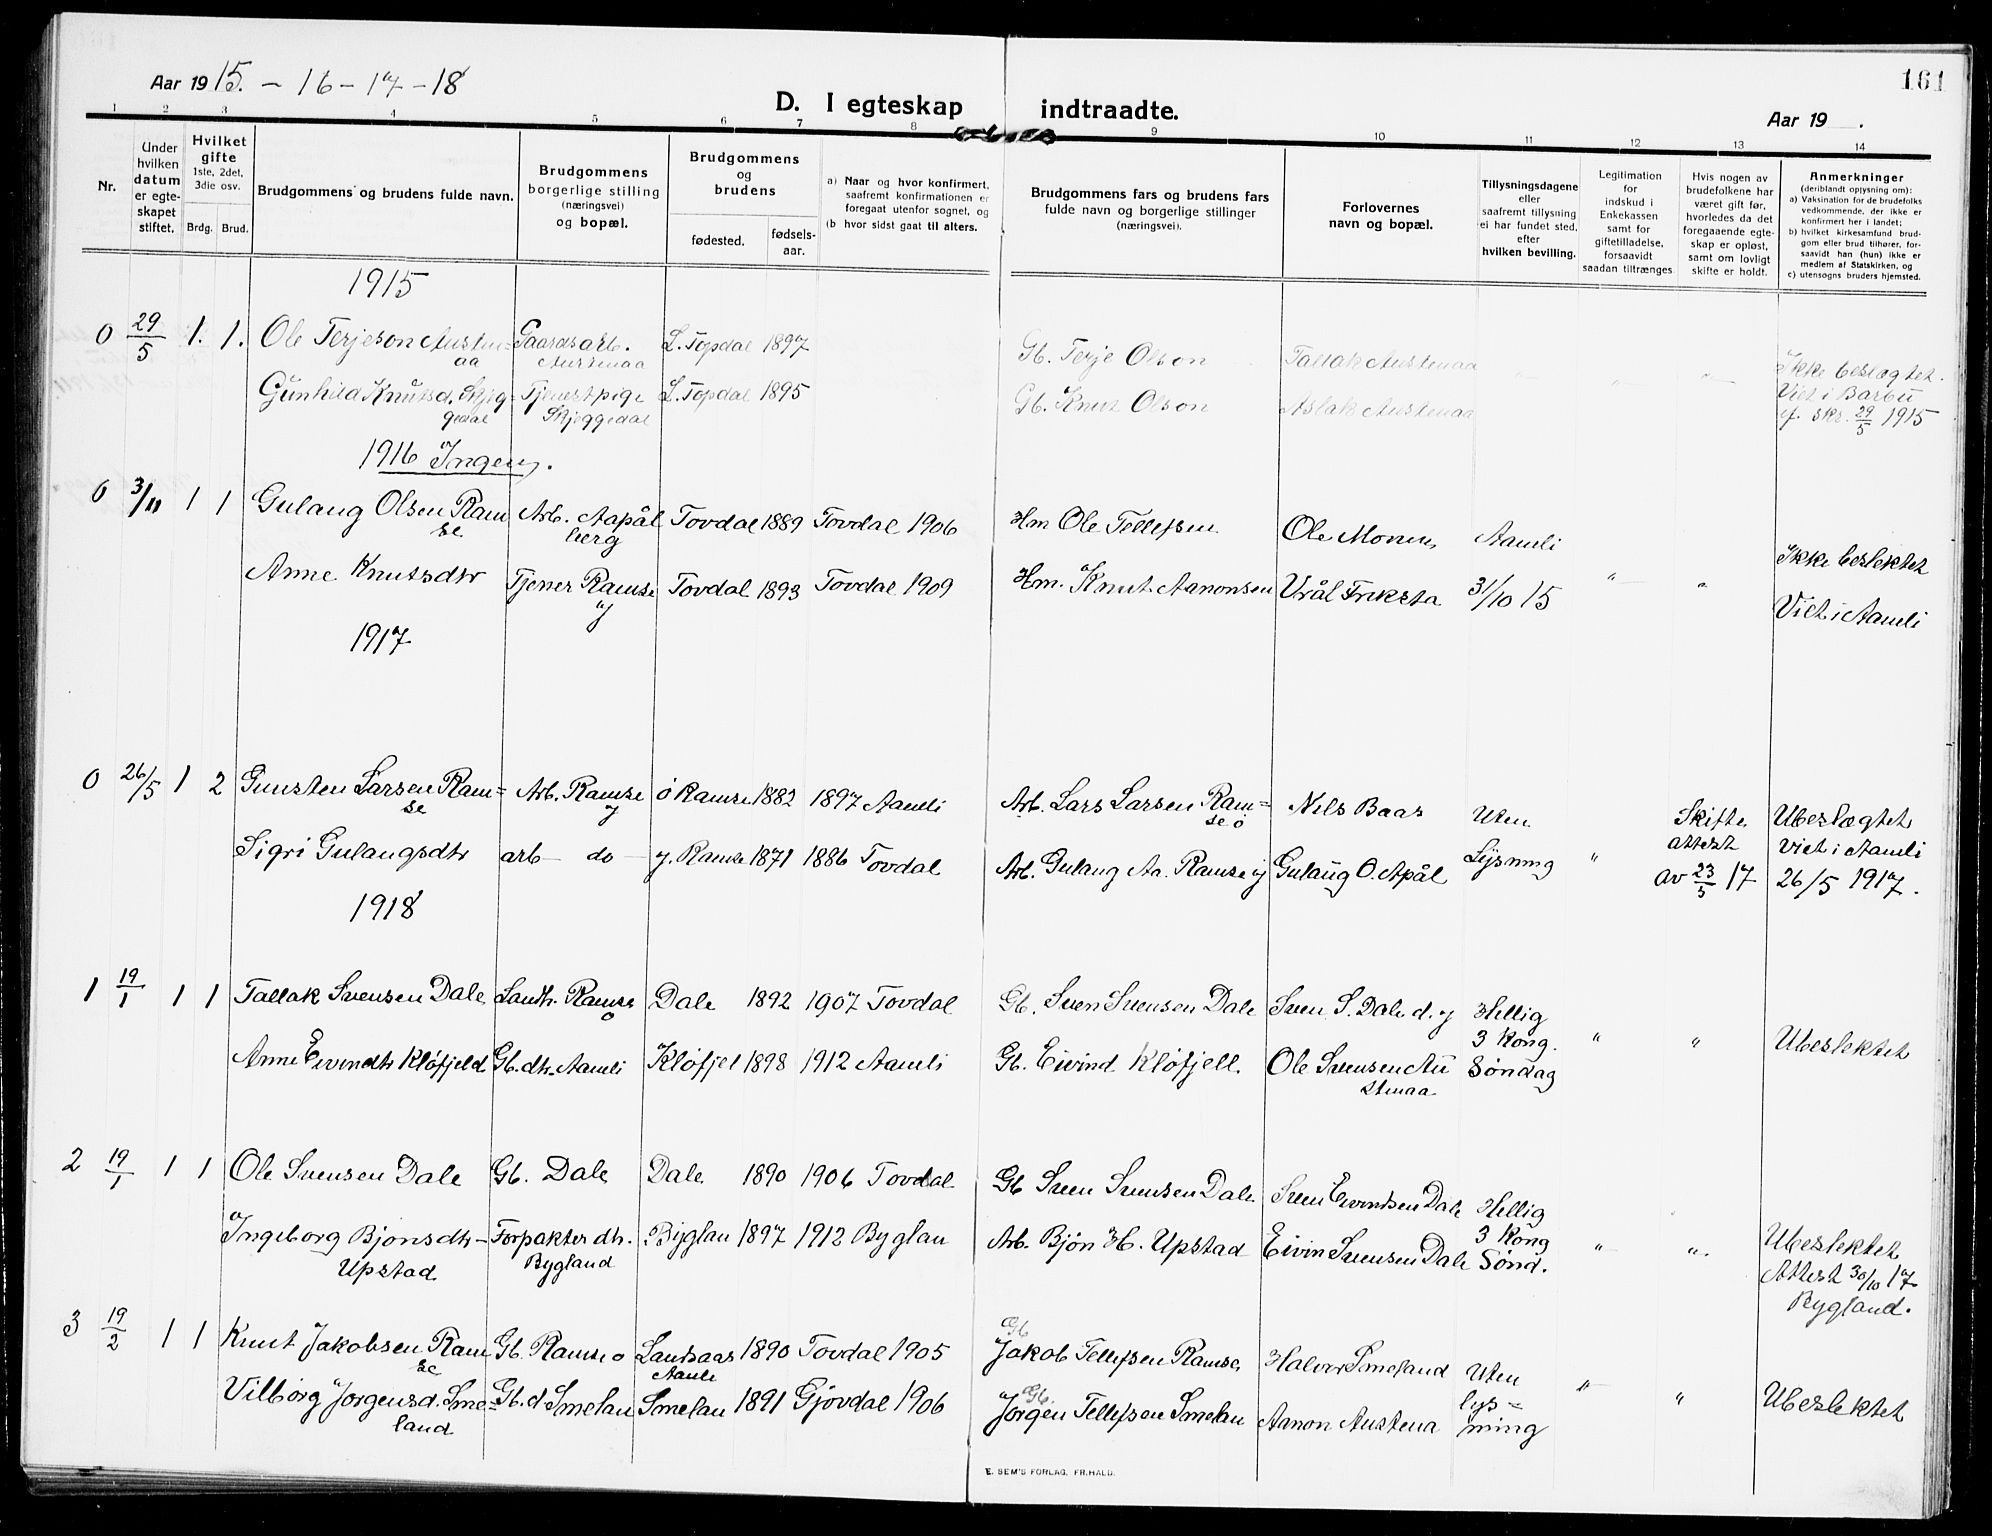 Aar 1915. - 16 - 17 - 18
161
D. I egteskap indtraadte.
Aar 19 .
1 2 3 4 5 6 7 8 9 10 11 12 13 14
Nr.
Under hvilken datum er egteskapet stiftet.
Hvilket gifte 1ste, 2det, 3die osv.
Brdg. Brud.
Brudgommens og brudens fulde navn.
Brudgommens borgerlige stilling (næringsvei) og bopæl.
Brudgommens og brudens
fødested. fødselsaar.
a) Naar og hvor konfirmert, saafremt konfirmationen er foregaat utenfor sognet, og
(b hvor sidst gaat til alters.
Brudgommens fars og brudens fars fulde navn og borgerlige stillinger (næringsvei).
Forlovernes navn og bopæl.
Tillysningsdagene eller saafremt tillysning ei har fundet sted, efter hvilken bevilling.
Legitimation for indskud i Enkekassen samt for giftetilladelse, forsaavidt saadan tiltrænges
Hvis nogen av brudefolkene har været gift før, hvorledes da det foregaaende egteskap er opløst, samt om lovligt skifte er holdt.
Anmerkninger (deriblandt opysning om):
a) Vaksination for de brudefolks vedkommende, der ikke er konfirmert her i landet;
b) hvilket kirkesamfund brudgom eller brud tilhører, forsaavidt han (hun) ikke er medlem af Statskirken, og
c) utensogns bruders hjemsted.
1915
0 29/5 1. 1. Ole Terjeson Austenaa Gaardsarb. Austenaa L. Topdal 1897 Gb. Terje Olson Tallak Austenaa
Gunhild Knutsd. Skjeggedal Tjenestpige Skjeggedal L. Topdal 1895 Gb. Knut Olson Aslak Austenaa " " " Ikke beslægtet. Viet i Barbu 29/5 1915
1916 Ingen.
0 3/11 1 1 Gulaug Olsen Ramse Arb. Aapålberg Tovdal 1889 Tovdal 1906 Hm Ole Tellefsen Ole Monen Aamli
Anne Knutsdtr Tjener Ramse y Tovdal 1893 Tovdal 1909 Hm. Knut Aanonsen Vrål Friksta 31/10 15 " " Ikke beslektet Viet i Aamli
1917
0 26/5 1 2 Gunsten Larsen Ramse Arb. Ramse y ö Ramse 1882 1897 Aamli Arb. Lars Larsen Ramse ö Nils Baas Uten
Sigri Gulaugsdtr arb - do - y. Ramse 1871 1886 Tovdal Arb. Gulaug Aa. Ramse y Gulaug O. Apål Lysning " Skifte attest av 23/5 17 Ubeslægtet viet i Aamli 26/5 1917.
1918
1 19/1 1 1 Tallak Svensen Dale Landh. Ramse o Dale 1892 1907 Tovdal Gb. Sven Svensen Dale Sven S. Dale d. y Hellig
Anne Eivindtr Kløfjeld Gb. dtr. Aamli Kløfjel 1898 1912 Aamli Gb. Eivind Kløfjell. Ole Svensen Austenaa 3 Kong. Søndag " " Ubeslektet
2 19/1 1 1 Ole Svensen Dale Gb. Dale Dale 1890 1906 Tovdal Gb Sven Svensen Dale Sven Eivindsen Dale Hellig
Ingeborg Bjønsdtr - Upstad Forpakter dtr. Bygland Byglan 1897 1912 Byglan Arb. Bjøn H. Upstad Eivin Svensen Dale 3 Kong Sønd. " " Ubeslektet Attest 30/10 17 Bygland.
3 19/2 1 1 Knut Jakobsen Ramse Gb. Ramse o Landsaas Aamli 1890 Tovdal 1905 Gb Jakob Tellefsen Ramse Halvor Smeland Uten
Vilborg Jørgensd. Smeland Gb. d Smelan Smelan 1891 Gjøvdal 1906 Gb Jørgen Tellefsen Smelan Aanon Austena lysning " " Ubeslektet
E. SEM'S FORLAG, FR.HALD.